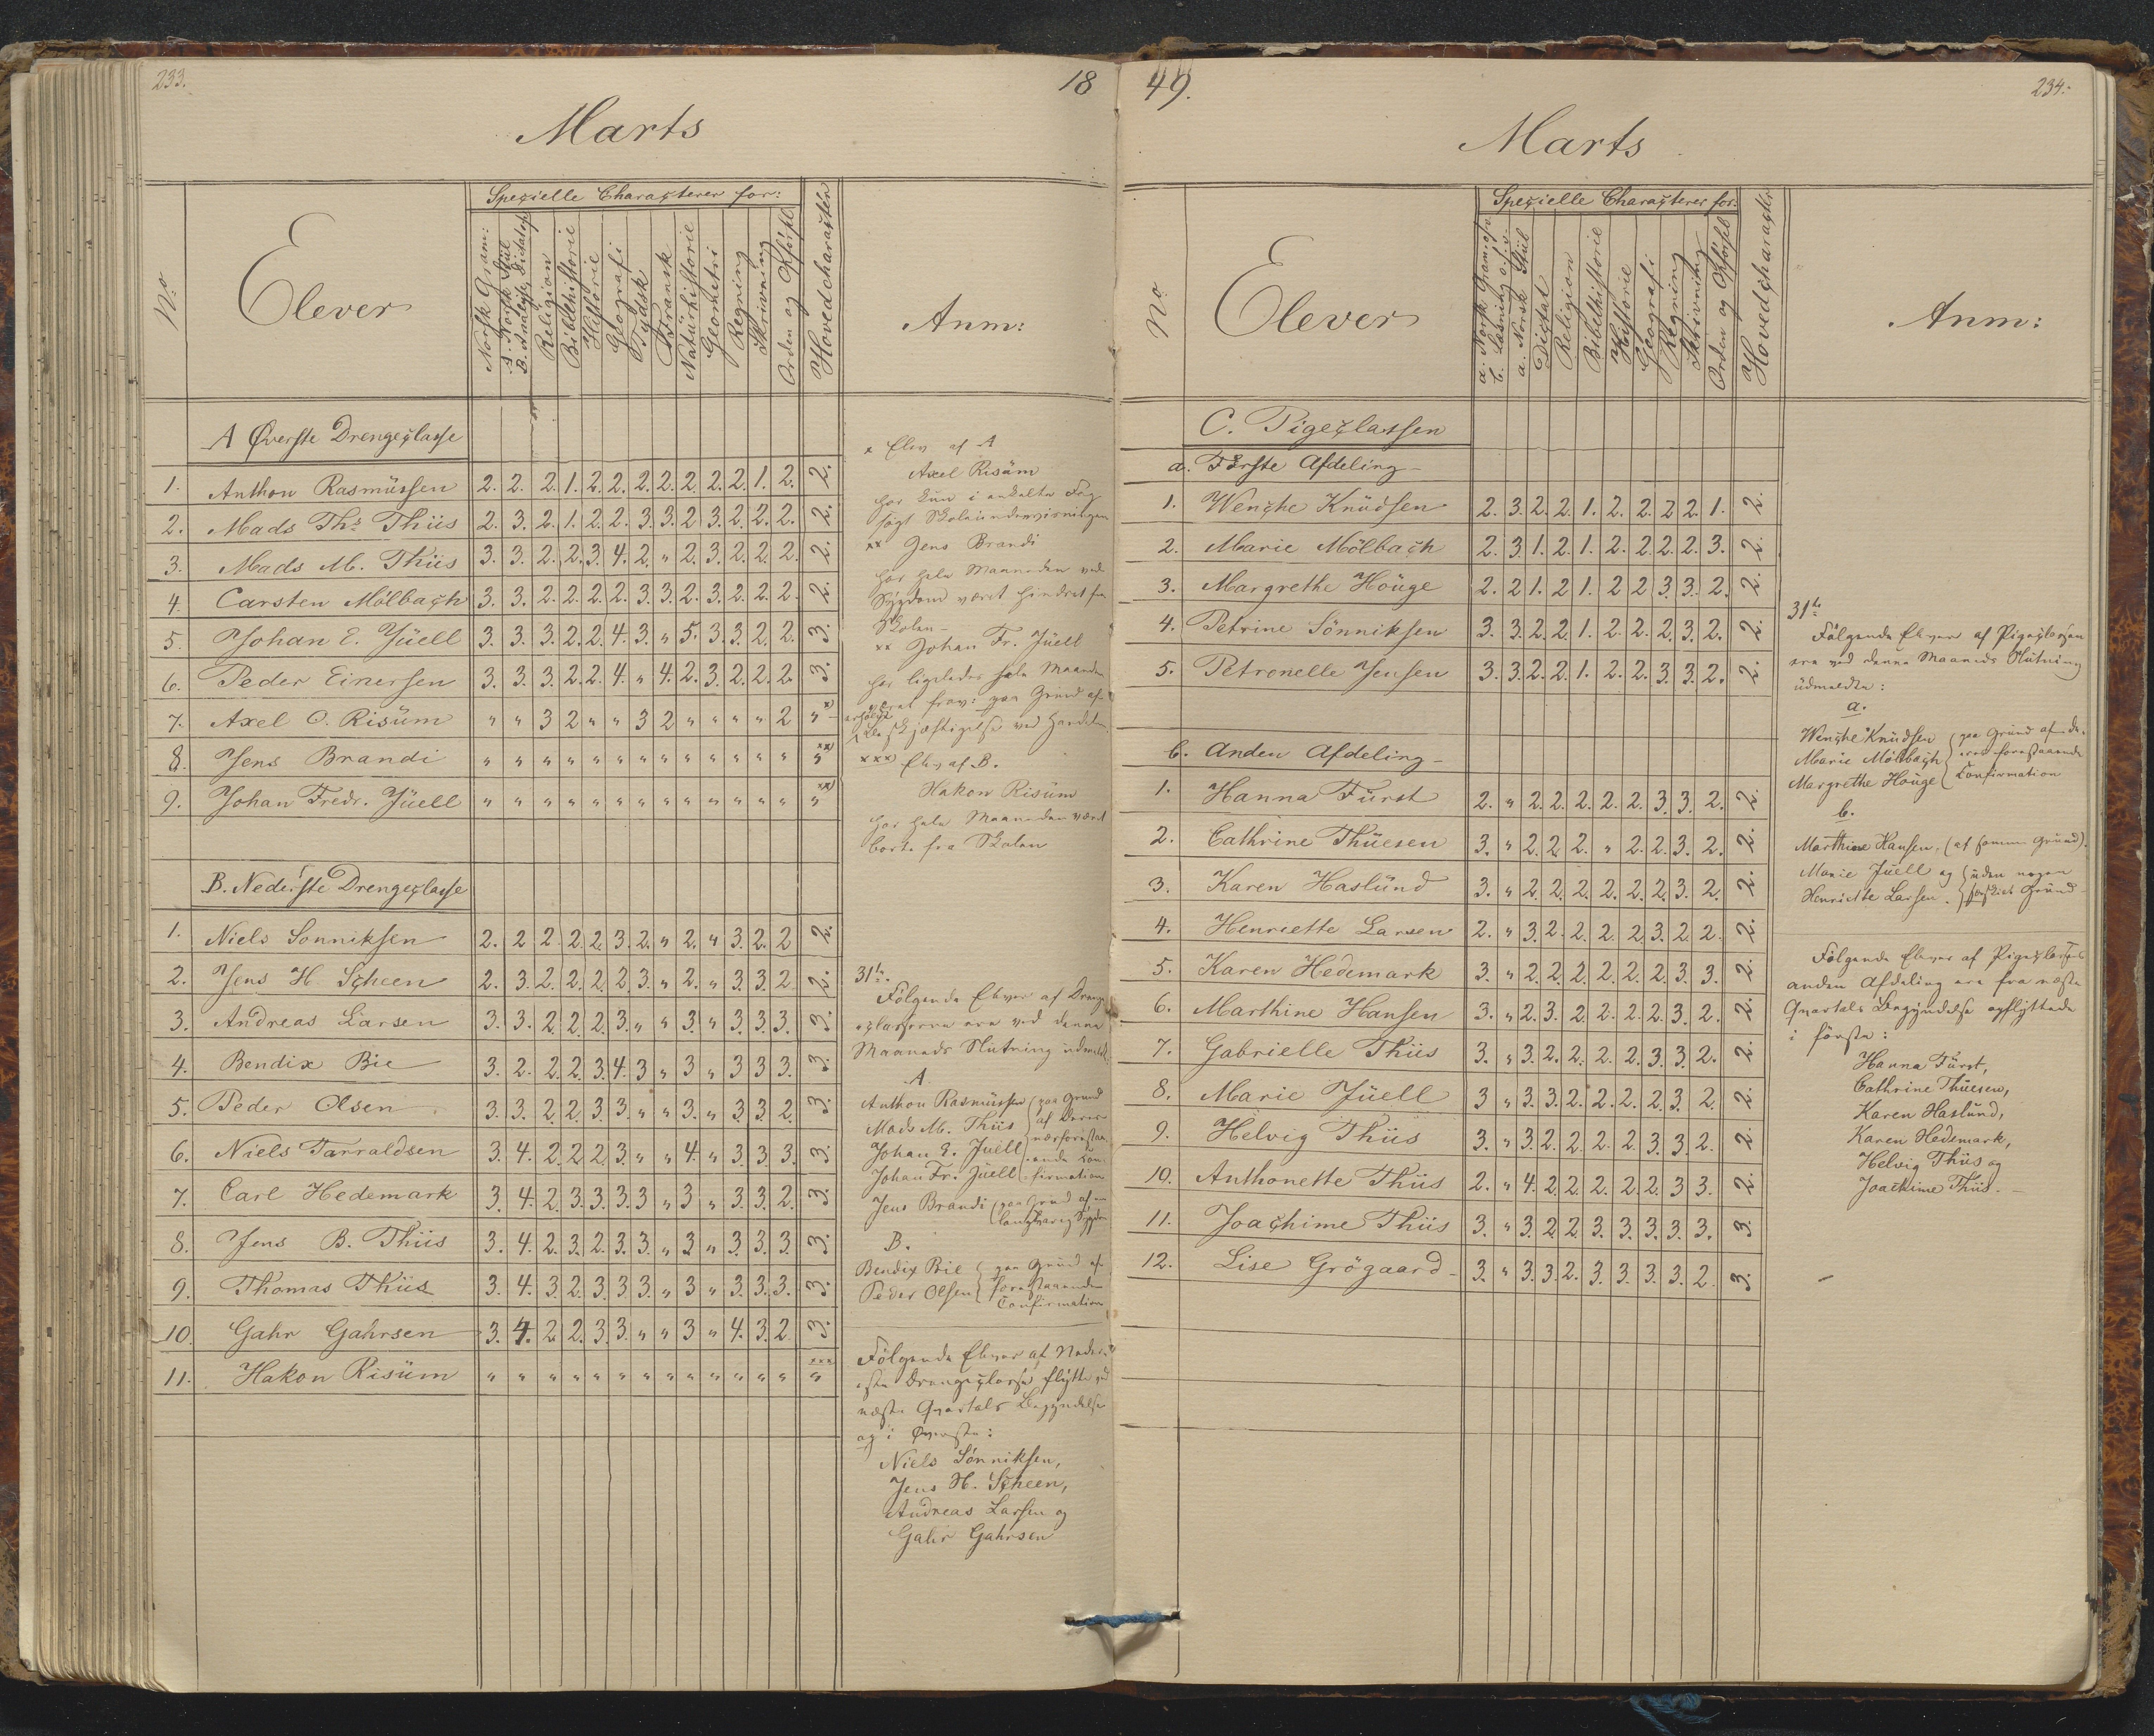 233.
18
Marts
No
Elever
Specielle Characterer for:
Norsk Gram:
A. Norsk Stiil
B. Analyse, Dictat
Religion
Bibelhistorie
Historie
Geografi
Tydsk
Fransk
Naturhistorie
Geometri
Regning
Skrivning
Orden og Opførsel
Hovedcharacter
Anm:
A Øverste Drengeclasse
1. Anthon Rasmüssen 2. 2. 2. 1. 2. 2. 2. 2. 2. 2. 2. 1. 2. 2.
2. Mads Ths Thiis 2. 3. 2. 1. 2. 2. 3. 3. 2 3. 2. 2. 2. 2.
3. Mads M. Thiis 3. 3. 2. 2. 3. 4. 2. " 2. 3. 2. 2. 2. 2.
4. Carsten Mölbach 3. 3. 2. 2. 2. 2. 3. 3. 2. 3. 2. 2. 2. 2.
5. Johan E. Jüell 3. 3. 3. 2. 2. 4. 3. " 5. 3. 3. 2. 2. 3.
6. Peder Einersen 3. 3. 3. 2. 2. 4. " 4. 2. 3. 2. 2. 2. 3.
7. Axel O. Risüm " " 3 2 " " 3 2 " " " " 2 " x)
8. Jens Brandi " " " " " " " " " " " " " " xx)
9. Johan Fredr. Jüell " " " " " " " " " " " " " " xx)
B. Nederste Drengeclasse
1. Niels Sonniksen 2. 2 2. 2. 2. 3. 2. " 2. " 3. 2. 2 2.
2. Jens H. Scheen 2. 3. 2. 2. 2. 2. 3. " 2. " 3. 3. 2. 2.
3. Andreas Larsen 3. 3. 2. 2. 2. 3. " " 3. " 3. 3. 3. 3.
4. Bendix Bie 3. 2. 2. 2. 3. 4. 3 " 3 " 3 3 3. 3.
5. Peder Olsen 3. 3. 2. 2. 3. 3. " " 3. " 3. 3. 2. 3.
6. Niels Tarraldsen 3. 4. 2. 2. 2. 3. " " 4. " 3. 3. 3. 3.
7. Carl Hedemark 3. 4. 2. 3. 3. 3. 3 " 3 " 3. 3. 2. 3.
8. Jens B. Thiis 3. 4. 2. 3. 2. 3. 3. " 3 " 3. 3. 3. 3.
9. Thomas Thiis 3. 4. 3. 2. 3. 3. 3. " 3 " 3. 3. 3. 3.
10. Gahr Gahrsen 3. 4. 2. 2. 3. 3. " " 3 " 4. 3. 2. 3.
11. Hakon Risüm " " " " " " " " " " " " " " xxx
x Elev af A
Axel Risüm
har kun i enkelte Fag
søgt Skoleundervisningen
xx Jens Brandi
har hele Maaneden ved
Sygdom været hindret fra
Skolen
xx Johan Fr. Jüell
har ligeledes hele Maaneden
været frav: paa Grund af
Beskjæftigelse ved Handelen
xxx) Elev af B.
Hakon Risüm
har hele Maaneden været
borte fra Skolen
31te
Følgende Elever af Drenge-
classerne ere ved denne
Maaneds Slutning udmeldte
A
Anthon Rasmüssen
Mads M. Thiis
Johan E. Juell
Johan Fr. Jüell
(paa Grund
af deres
nærforestaa-
ende Con-
firmation
Jens Brandi (paa Grund af en
langvarig Sygdom
B.
Bendix Bie
Peder Olsen
paa Grund af
forestaaende
Confirmation
Følgende Elever af Neder-
ste Drengeclasse flytte ved
næste Qvartals Begyndelse
op i Øverste:
Niels Sönniksen,
Jens H. Scheen,
Andreas Larsen og
Gahr Gahrsen
49.
234.
Marts
No
Elever
Specielle Characterer for:
a. Norsk Gram:
b. Læsning
a. Norsk Stiil
Dictat
Religion
Bibelhistorie
Historie
Geografi
Regning
Skrivning
Orden og Opførsel
Hovedcharacter
Anm:
C. Pigeclassen
a. Første Afdeling
1. Wenche Knüdsen 2. 3. 2. 2. 1. 2. 2. 2 2. 1. 2.
2. Marie Mölbach 2. 3. 1. 2. 1. 2. 2. 2. 2. 3. 2.
3. Margrethe Höuge 2. 2 1. 2. 1. 2 2 3. 3. 2. 2.
4. Petrine Sönniksen 3. 3. 2. 2. 1. 2. 2. 2. 3. 2. 2.
5. Petronelle Jensen 3. 3. 2. 2. 1. 2. 2. 3. 3. 2. 2.
b. Anden Afdeling
1. Hanna Fürst 2. " 2. 2. 2. 2. 2. 3. 3. 2. 2.
2. Cathrine Thüesen 3. " 2. 2. 2. " 2. 2. 3. 2. 2.
3. Karen Haslünd 3. " 2. 2. 2. 2. 2. 2. 3. 2. 2.
4. Henriette Larsen 2. " 3. 2. 2. 2. 2. 3. 2. 2. 2.
5. Karen Hedemark 3. " 2. 2. 2. 2. 2. 2. 3. 3. 2.
6. Marthine Hansen 3. " 2. 3. 2. 2. 2. 2. 3. 2. 2.
7. Gabrielle Thiis 3. " 3. 2. 2. 2. 2. 3. 3. 2. 2.
8. Marie Jüell 3 " 3. 3. 2. 2. 2. 2. 3. 2. 2.
9. Helvig Thiis 3. " 3. 2. 2. 2. 2. 3. 3. 2. 2.
10. Anthonette Thiis 2. " 4. 2. 2. 2. 2. 2. 3 3. 2.
11. Joachime Thiis 3. " 3. 2 2. 3. 3. 3. 3. 3. 3.
12. Lise Grögaard 3. " 3. 3. 2. 3. 3. 3. 3. 2. 3.
31te
Følgende Elever af Pigeclassen
ere ved denne Maaneds Slutning
üdmeldte:
a.
Wenche Knüdsen
Marie Mölbach
Margrethe Höuge
(paa Grund af de-
res forestaaende
Confirmation
b.
Marthine Hansen, (af samme Grund).
Marie Juell og
Henriette Larsen.
uden nogen
Grund
Følgende Elever af Pigeclassens
anden Afdeling ere fra næste
Qvartals Begyndelse opflyttede
i første:
Hanna Fürst,
Cathrine Thüesen,
Karen Haslünd,
Karen Hedemark,
Helvig Thiis og
Joachime Thiis.